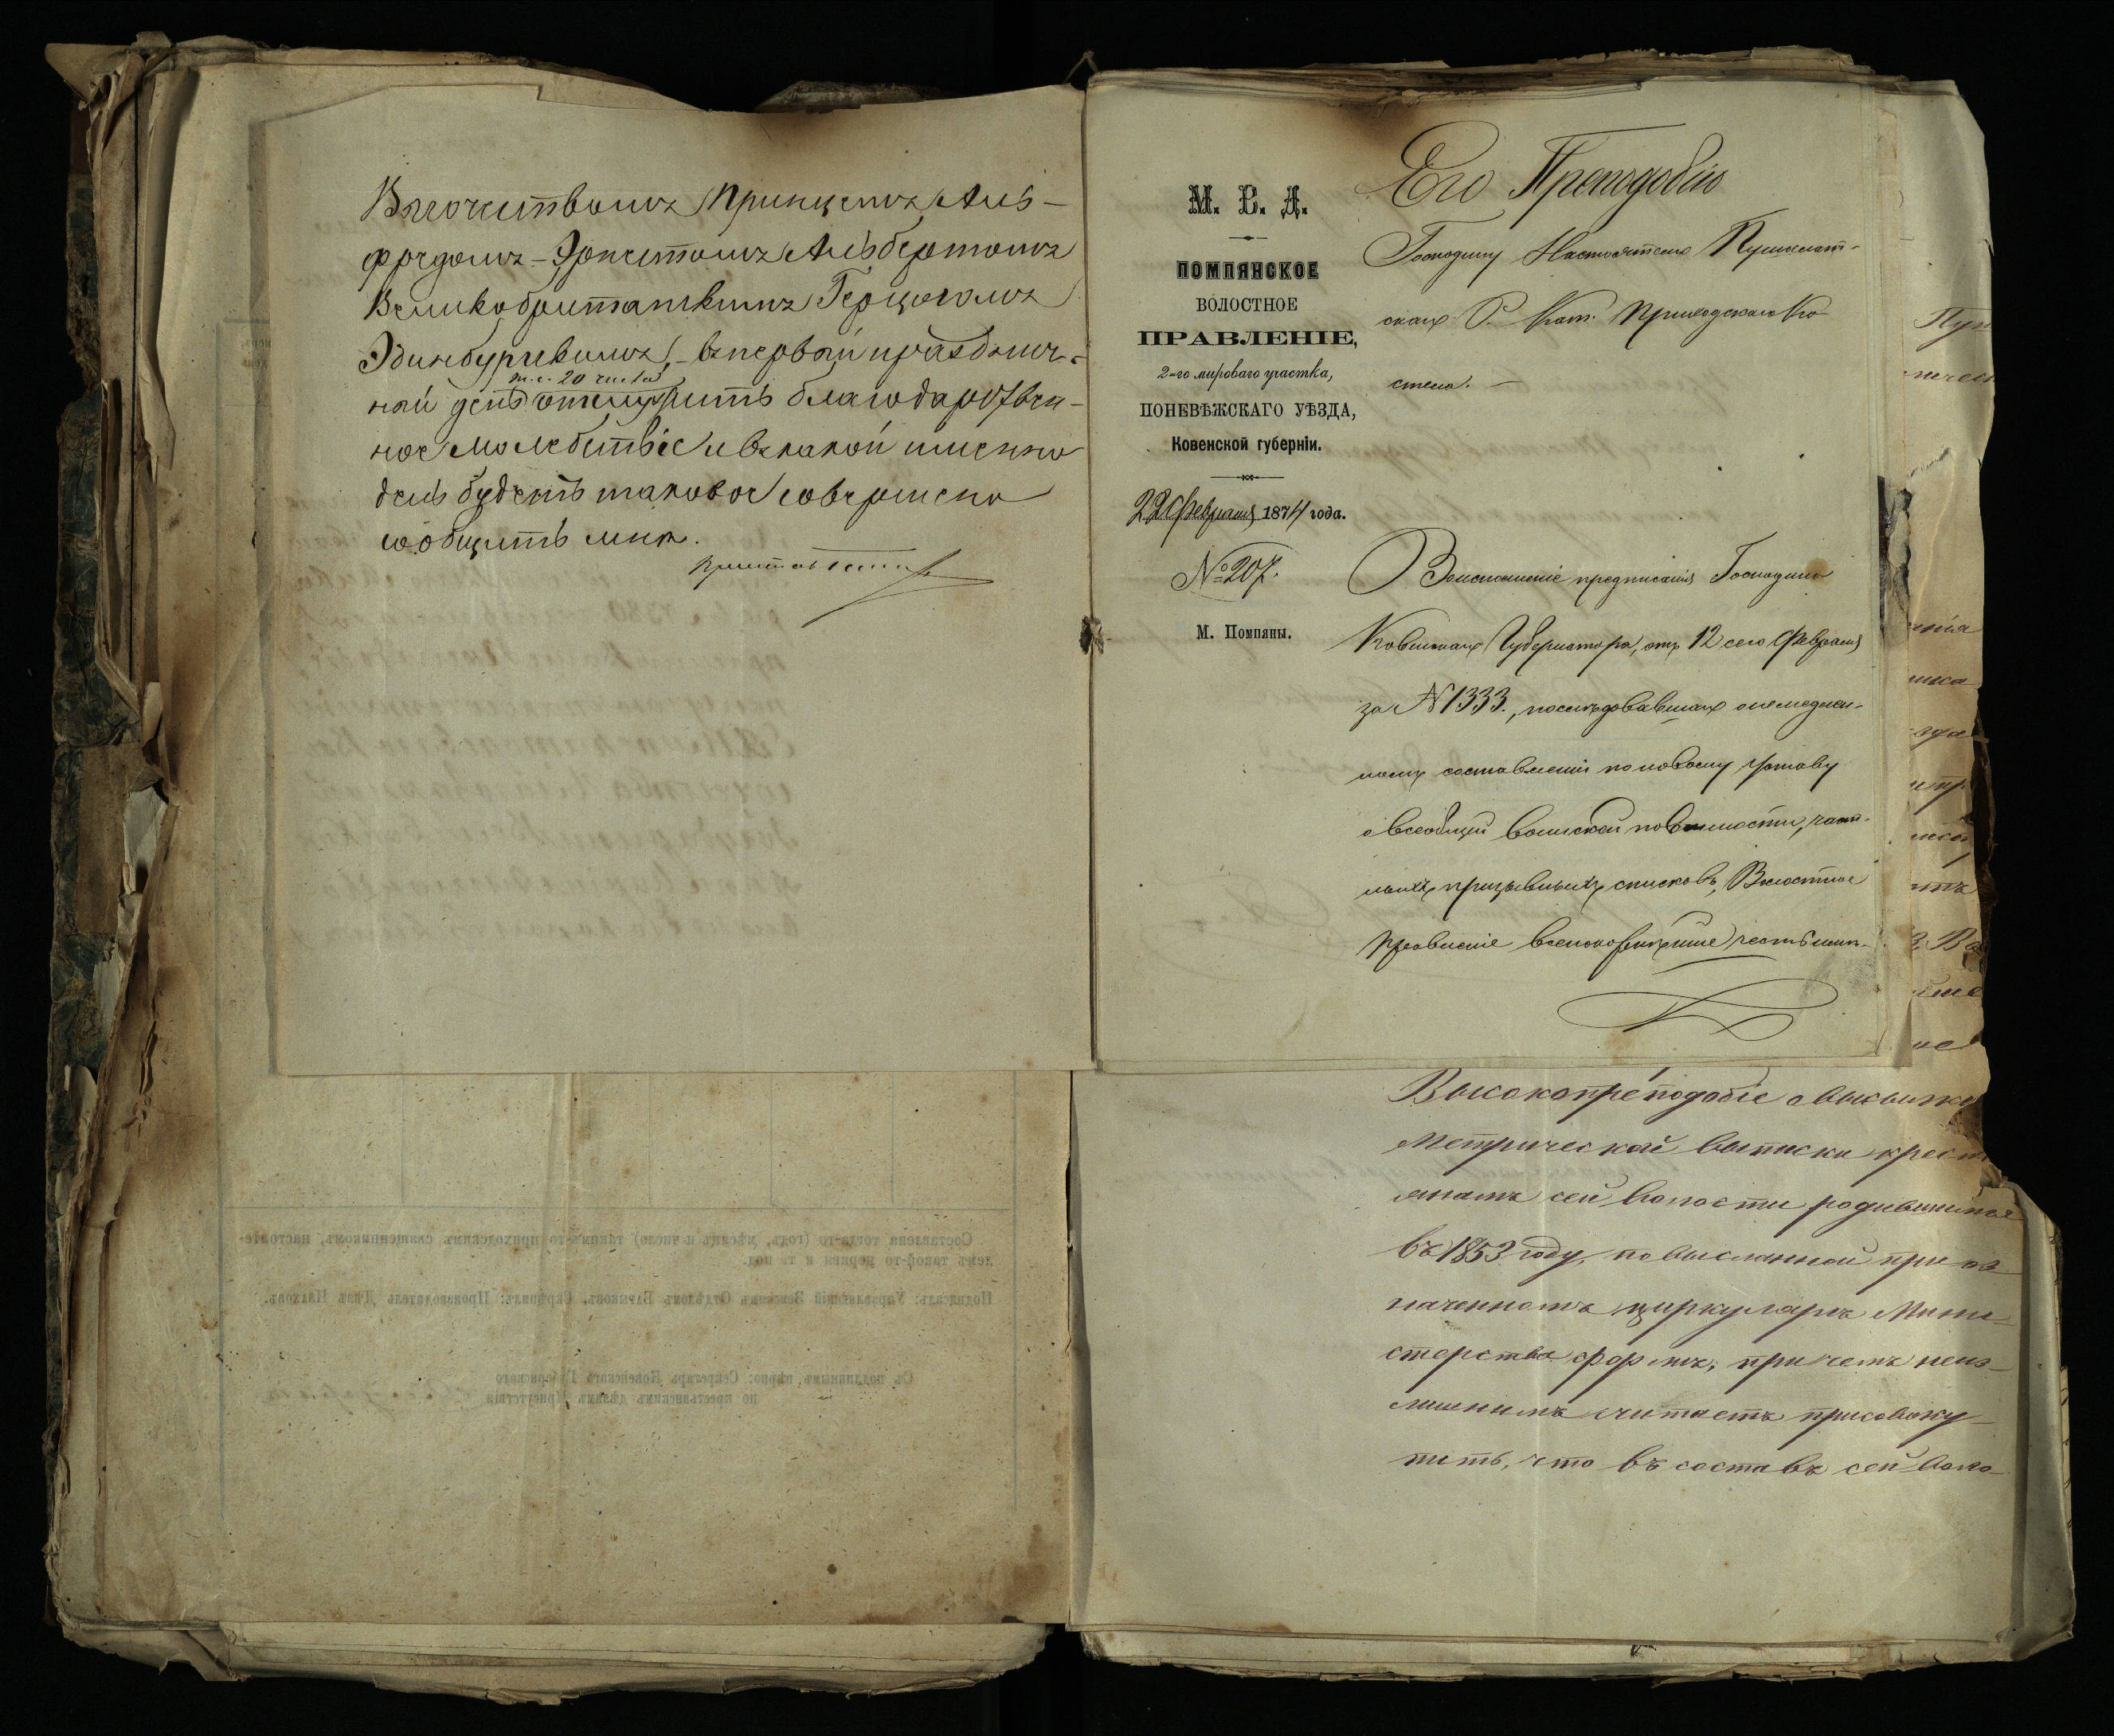 Высочествомъ Принцемъ Аль-
фредомъ-Эрнестомъ Альбертомъ
Великобританскимъ Герцогомъ
Эдинбургскимъ, въ первый празднич-
т. е. 20 числа
ный день отслужить благодарствен-
ное молебствіе и въ какой именно
день будетъ таковое совершено
сообщить мнѣ.
Приставъ
М. В. Д.
ПОМПЯНСКОЕ
ВОЛОСТНОЕ
ПРАВЛЕНІЕ,
2-го мироваго участка,
ПОНЕВѢЖСКАГО УѢЗДА,
Ковенской губерніи.
22 Февраля 1874 года.
№ 207.
М. Помпяны.
Его Преподобію
Господину Настоятелю Пушолат-
скаго Р. Кат. Приходскаго Ко
стела. —
Во исполненіе предписанія Господина
Ковенскаго Губернатора, отъ 12 сего Февраля
за N 1333., послѣдовавшаго о немедлен-
номъ составленіи по новому Уставу
о всеобщей воинской повинности, част-
ныхъ призывныхъ списковъ, Волостное
Правленіе всепокорнѣйше честь имѣ-
Высокопреподобіе о высылке
Метрической выписки крест
янамъ сей волости родившимся
въ 1853 году, по высланной при оз
наченномъ циркулярѣ Мини-
стерства формѣ, при чемъ неиз-
лишнимъ считаетъ присовоку-
пить, что въ составѣ сей воло-
Составлена тогда-то (годъ, мѣсяцъ и число) такимъ-то приходскимъ священникомъ, настояте-
лемъ такой-то церкви и т. под.
Подписалъ: Управляющій Земскимъ Отдѣломъ Скрѣпилъ: Производитель Дѣлъ
Съ подлиннымъ вѣрно: Секретарь Ковенскаго Губернскаго
по крестьянскимъ дѣламъ Присутствія